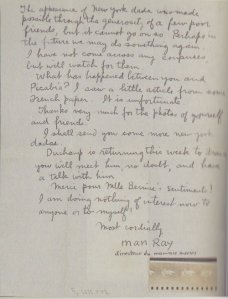 The appearance of New York dada was made
possible through the generosity of a few poor
friends, but it cannot go on so. Perhaps in
the future we may do something again.
I have not come across any
but will watch for them.
What has happened between you and
Picabia? I saw a little article from some
French paper. It is unfortunate
Thanks very much for the photos of yourself
and friends.
I shall send you some more new york
dadas.
Duchamp is returning this week to
you will meet him no doubt, and have
a talk with him.
Merci pour Mlle sentiment!
I am doing nothing of interest now to
anyone or to myself!
Most cordially
man Ray
directeur du mauvais movies